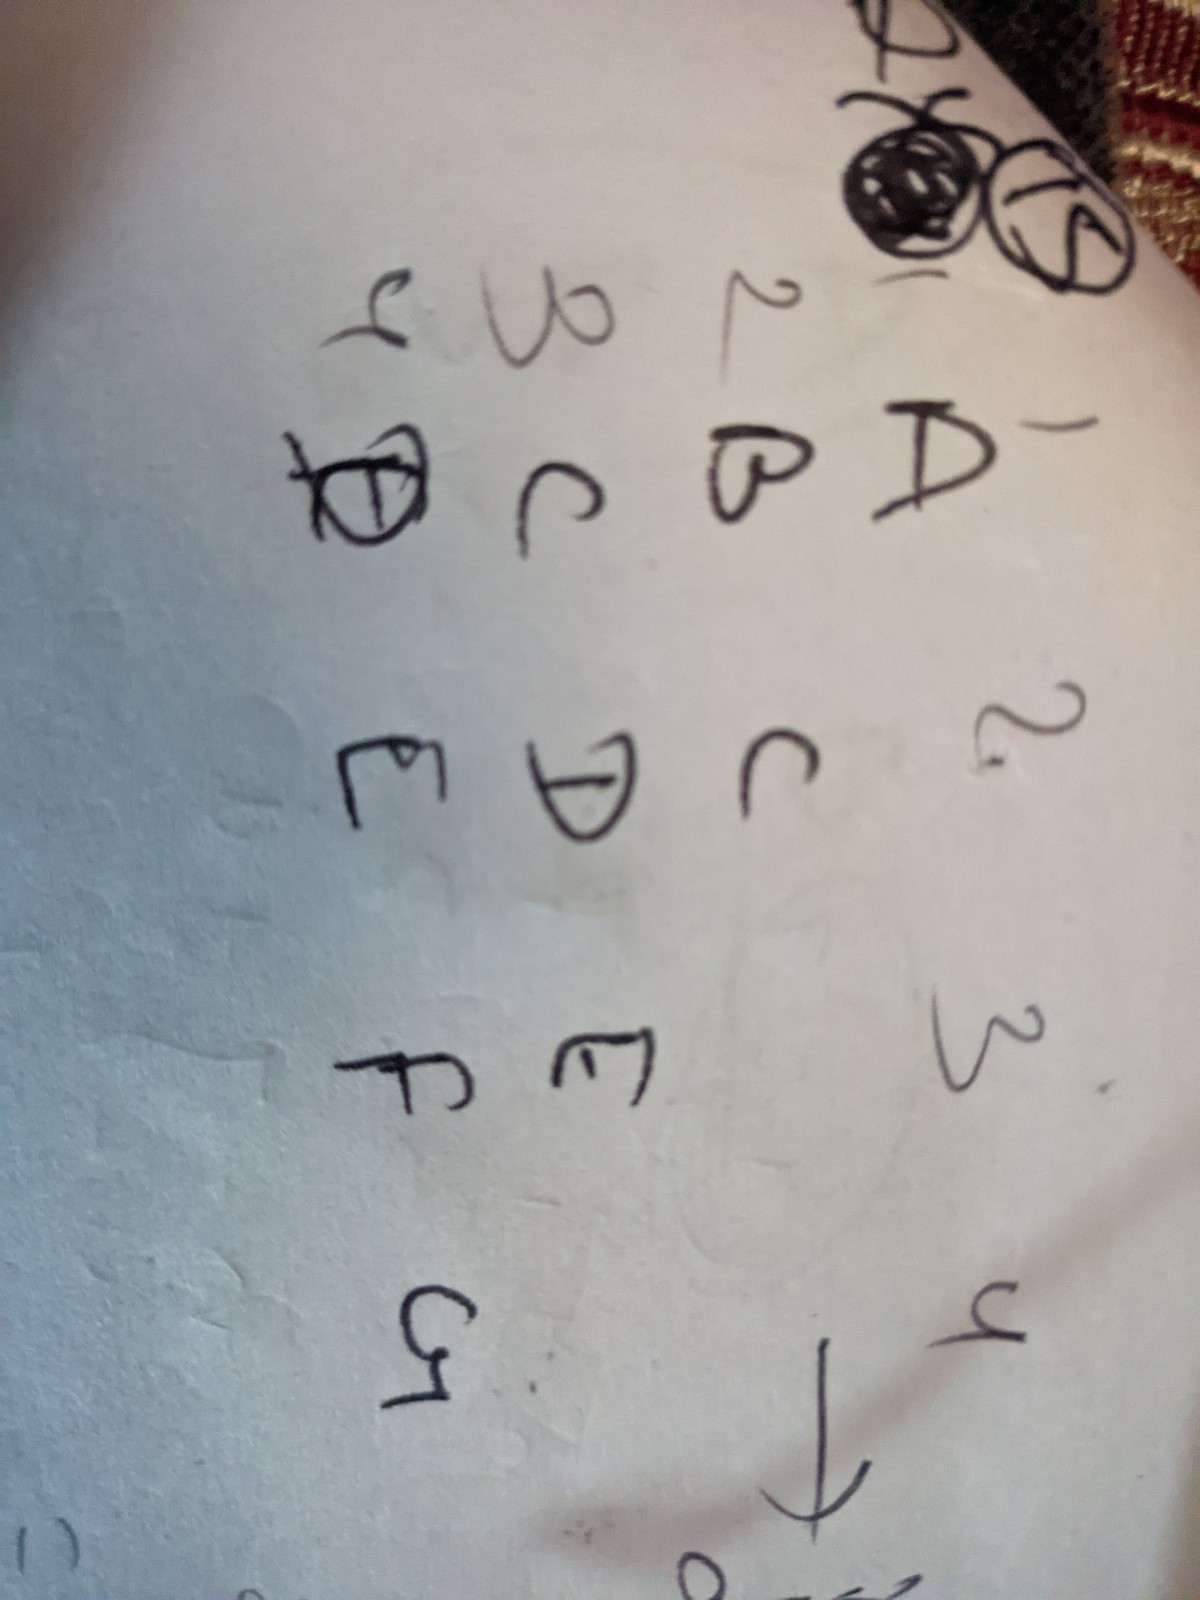 15 1 2 3 4
24 1 A
2 B C
3 C D E
4 D E F G